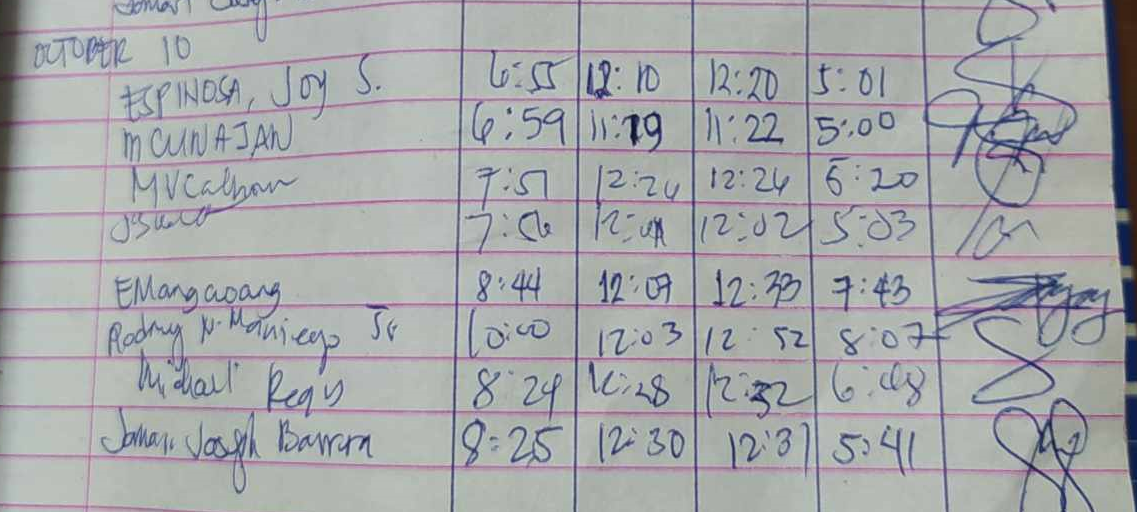 OCTOBER 10
ESPINOSA, Joy S. 6:55 12:10 12:20 5:01
MCUNAJAN 6:59 11:19 11:22 5:00
MVCalhoun 7:51 12:24 12:26 5:20
7:56 12:02 5:03
EMangaoang 8:44 12:07 12:33 7:43
Rodney N. Maniego Jr 10:00 12:03 12:52 8:07
Michael Regis 8:24 12:28 12:32 6:08
Joseph Barrera 8:25 12:30 12:31 5:41